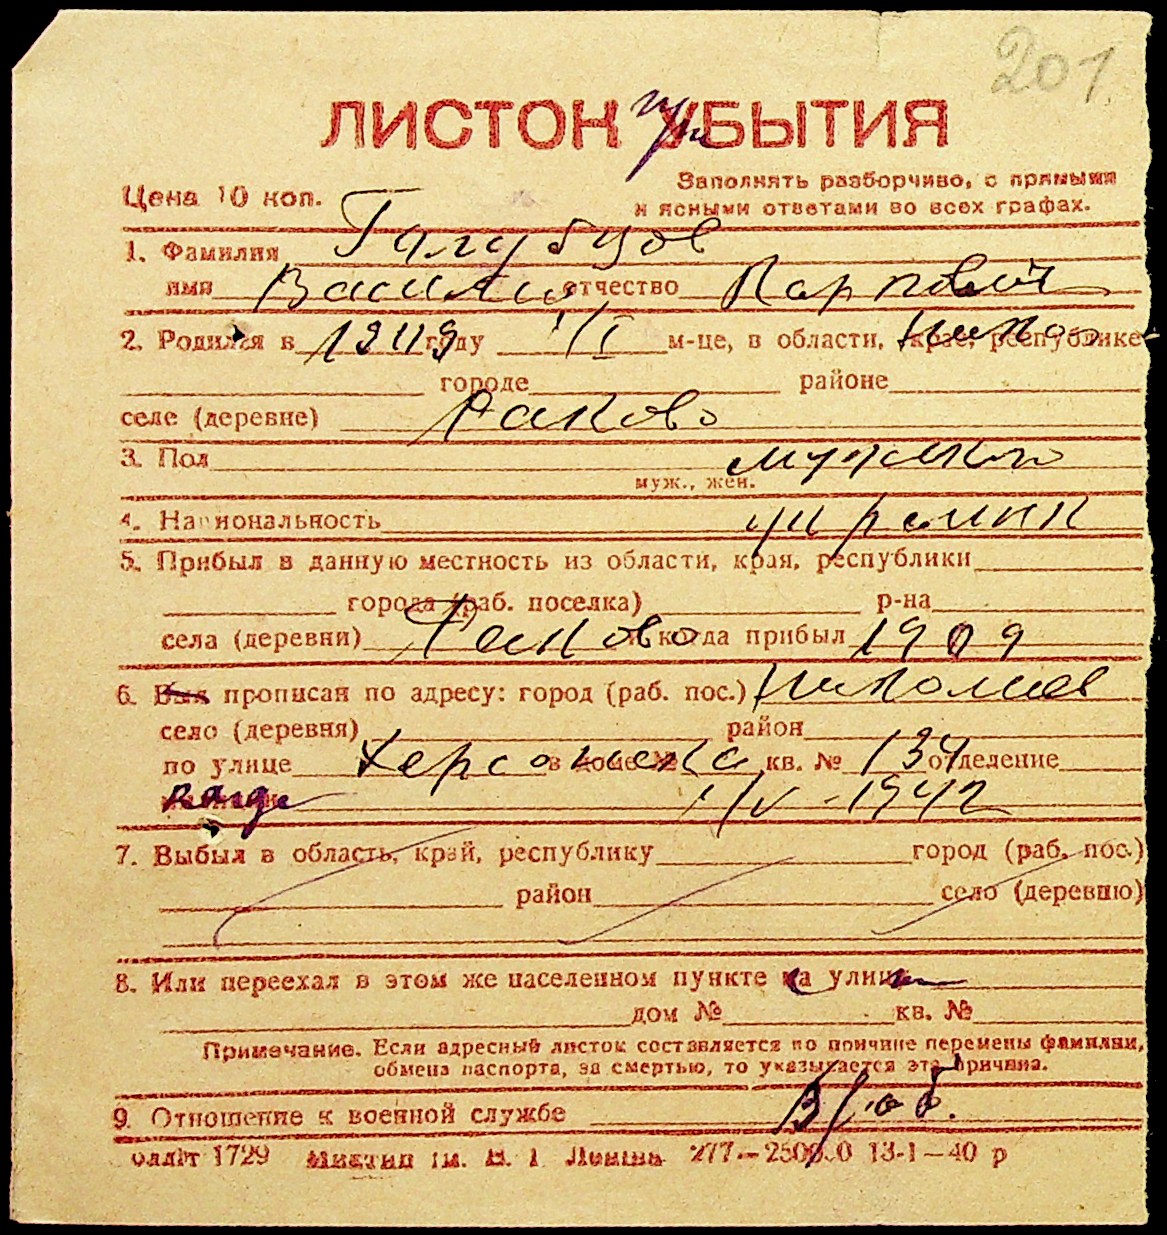 201
ЛИСТОК при УБЫТИЯ
Цена 10 коп.
Заполнять разборчиво, с прямыми
и ясными ответами во всех графах.
1. Фамилия Галубцов
имя Василий отчество Карпович
2. Родился в году м-це, в области, крае, республике
городе районе
селе (деревне) Раково
3. Пол мужской
муж., жен.
4. Национальность украинк
5. Прибыл в данную местность из области, края, республики
города (раб. поселка) р-на
села (деревни) Раково и когда прибыл 1909
6. Был прописан по адресу: город (раб. пос.) Николаев
село (деревня) район
по улице Херсонская в доме № кв. № 134 отделение
1/V - 1942
7. Выбыл в область, край, республику город (раб. пос.)
район село (деревню)
8. Или переехал в этом же населенном пункте на улицу
дом № кв. №
Примечание. Если адресный листок составляется по причине перемены фамилии,
обмена паспорта, за смертью, то указывается эта причина.
9. Отношение к военной службе В/об.
1729 277—250000 13-1—40 р